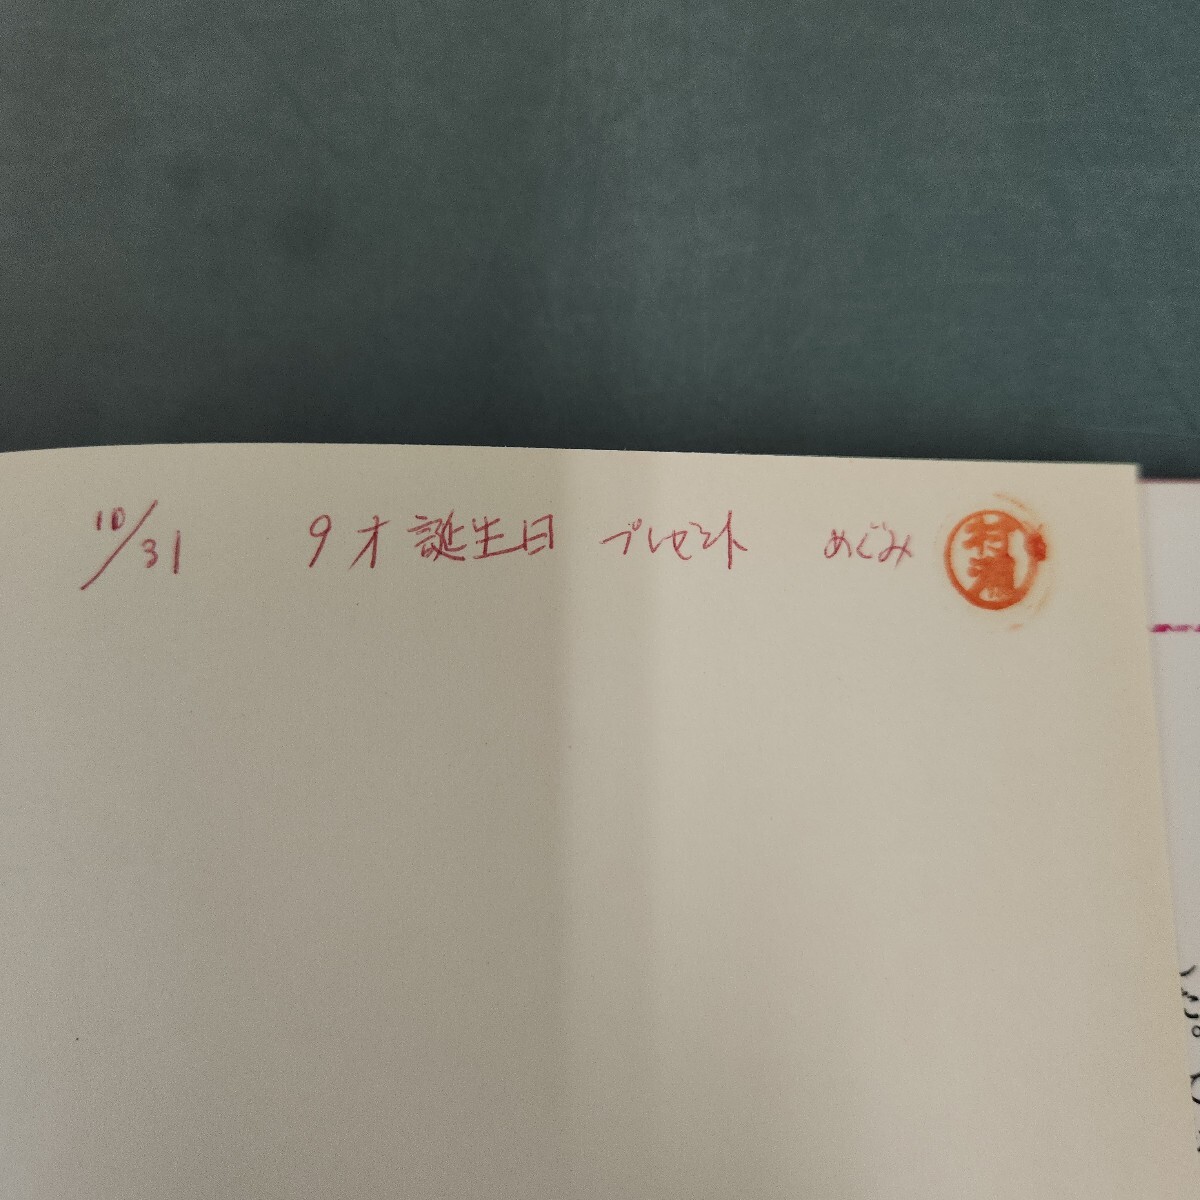 10/31 9才 誕生日 プレゼント めぐみ